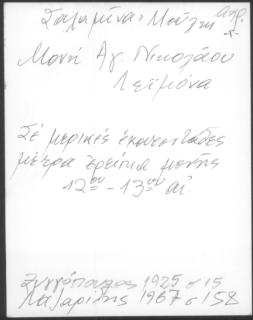 Σαλαμίνα: Μούλκι
Μονή Αγ. Νικολάου
Λεϊμόνα
Σέ μερικές ἑκατοντάδες
μέτρα ἐρείπια μονῆς
12ου - 13ου αἰ.
Ζυγγόπουλος 1925 σ 15
Λαζαρίδης 1967 σ 158